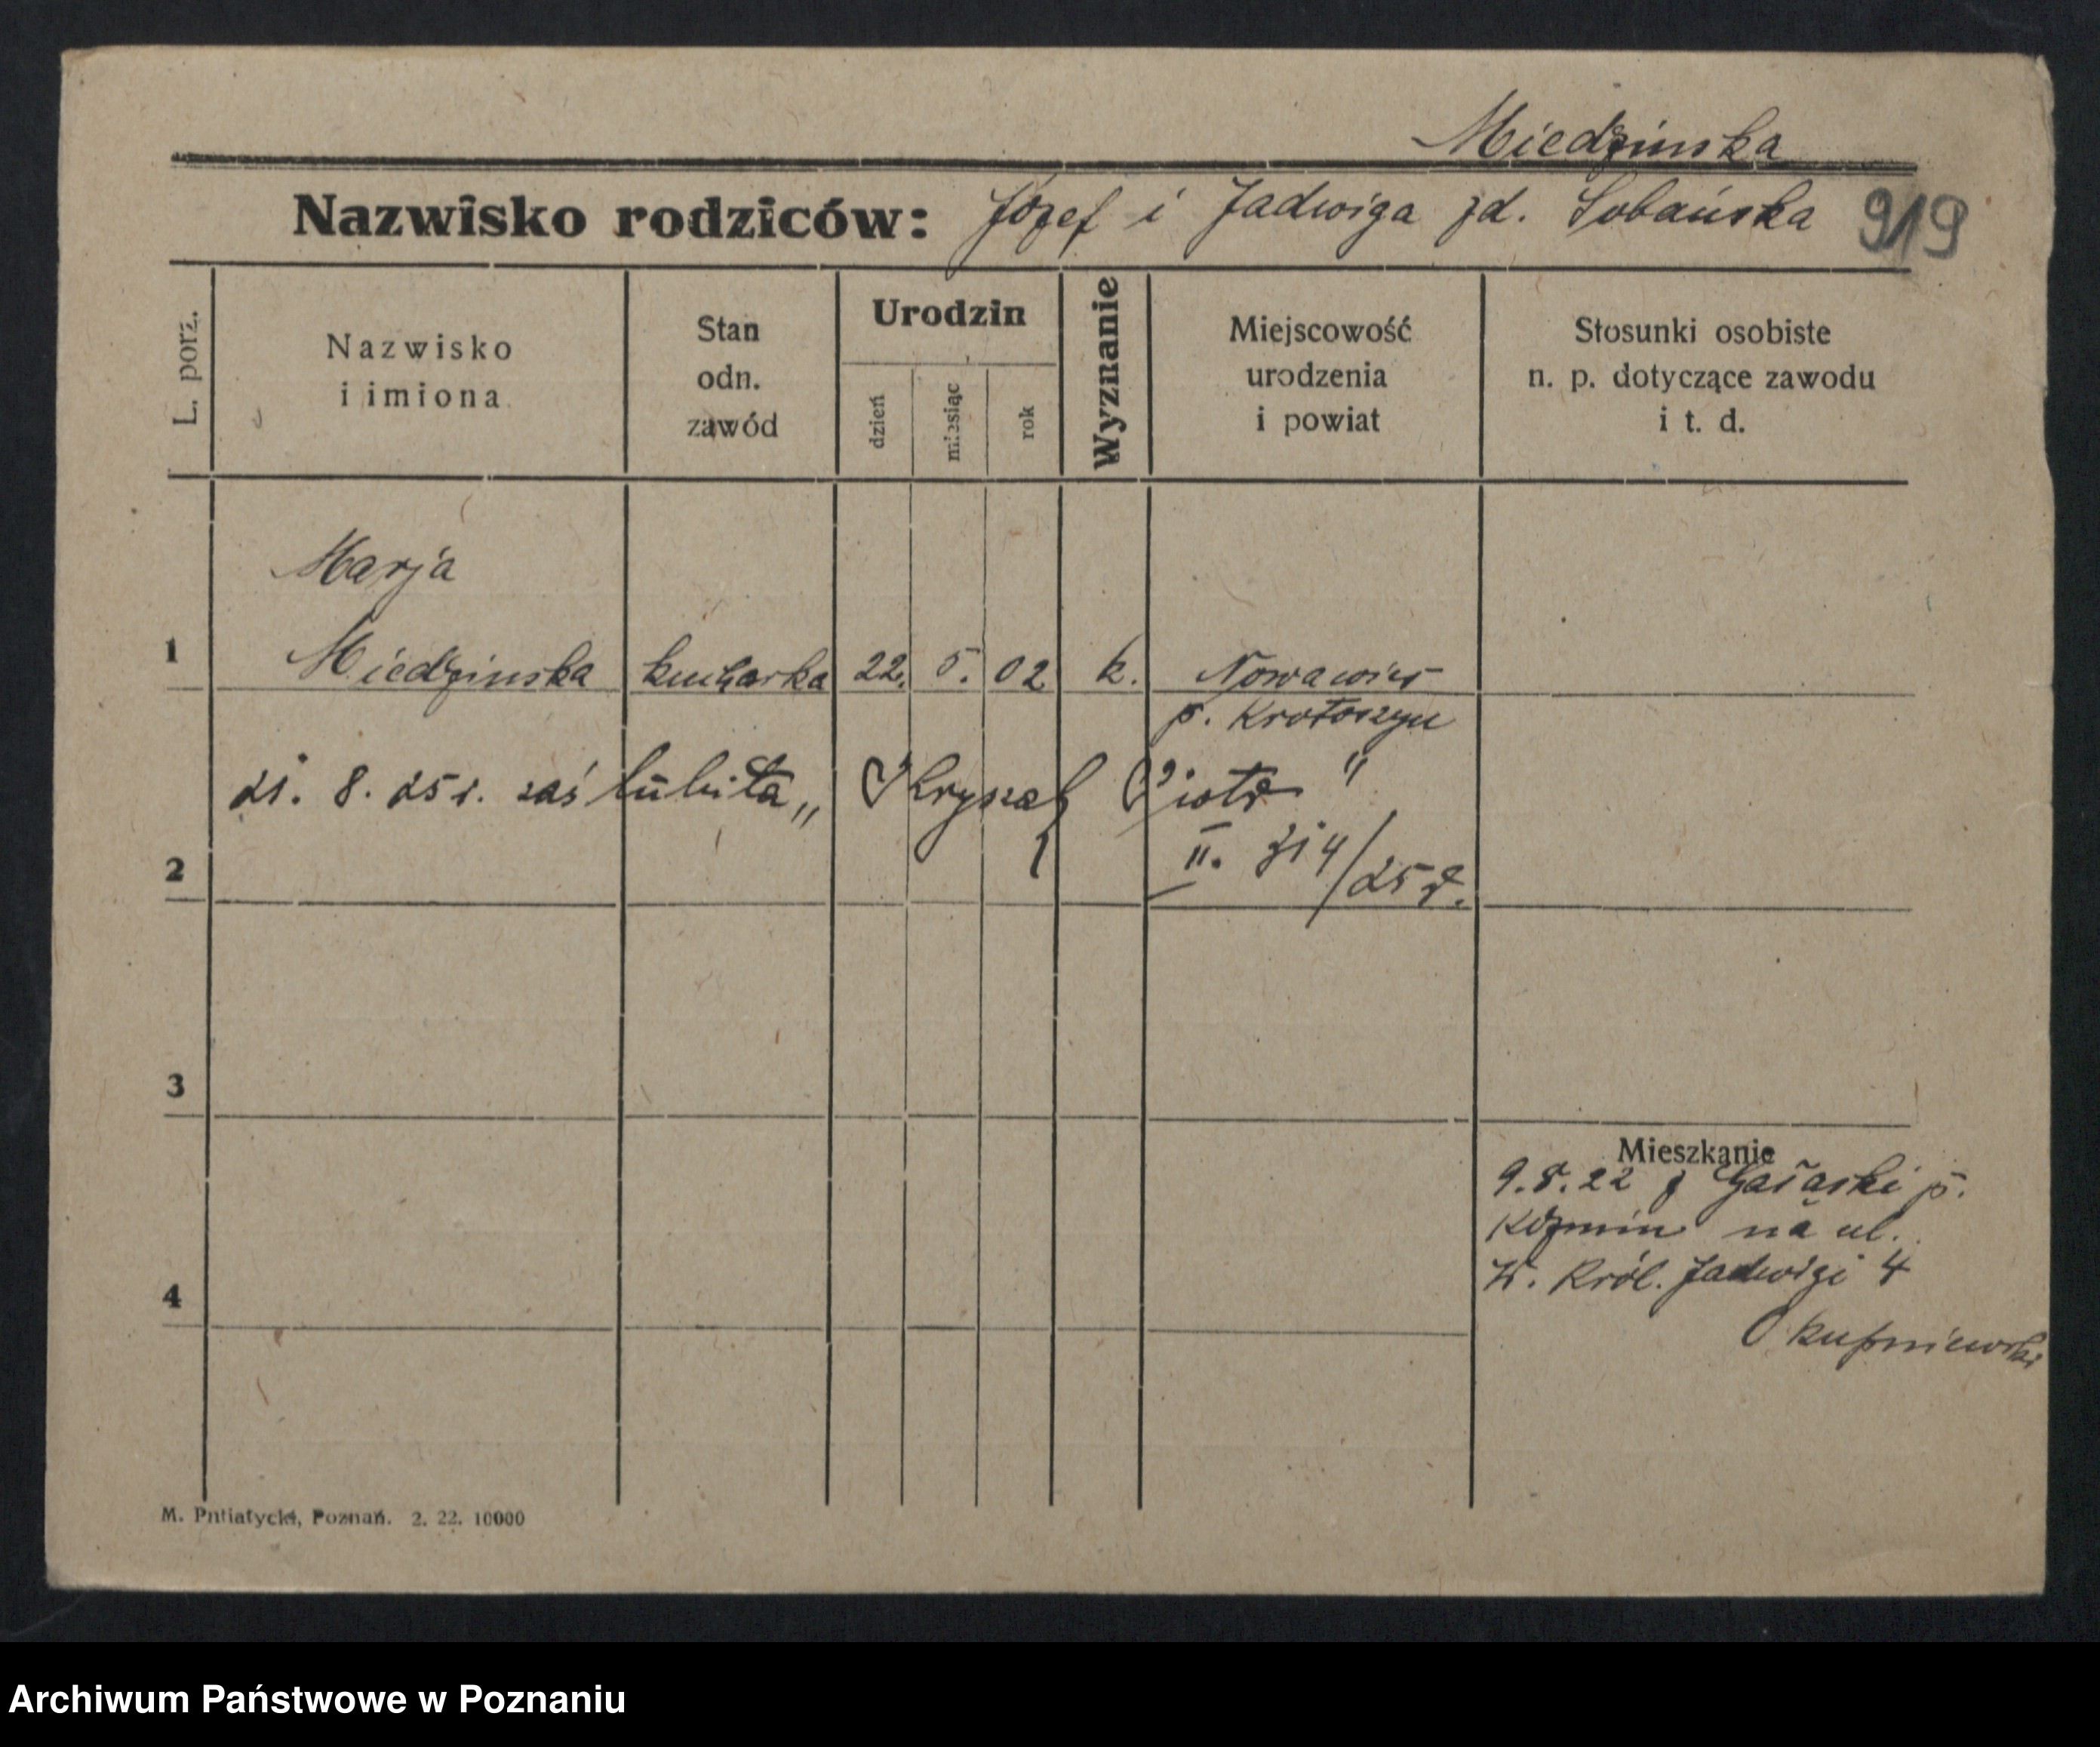 Miedzinska
Nazwisko rodziców: Józef i Jadwiga zd. Sobańska 919
L. porz.
Nazwisko i imiona
Stan odn. zawód
Urodzin
dzień miesiąc rok
Wyznanie
Miejscowość urodzenia i powiat
Stosunki osobiste n. p. dotyczące zawodu i t. d.
Marja
1 Miedzinska kucharka 22. 5. 02 k. Nowawieś
p. Krotoszyn
21. 8. 25 r. zaślubiła „ Piotr "
2 II. 314/25 r.
3
Mieszkanie
9.8.22 z Gałąski p.
Kozmin na ul.
W. Król. Jadwigi 4
4
M. Putiatycki, Poznań. 2. 22. 10000
Archiwum Państwowe w Poznaniu